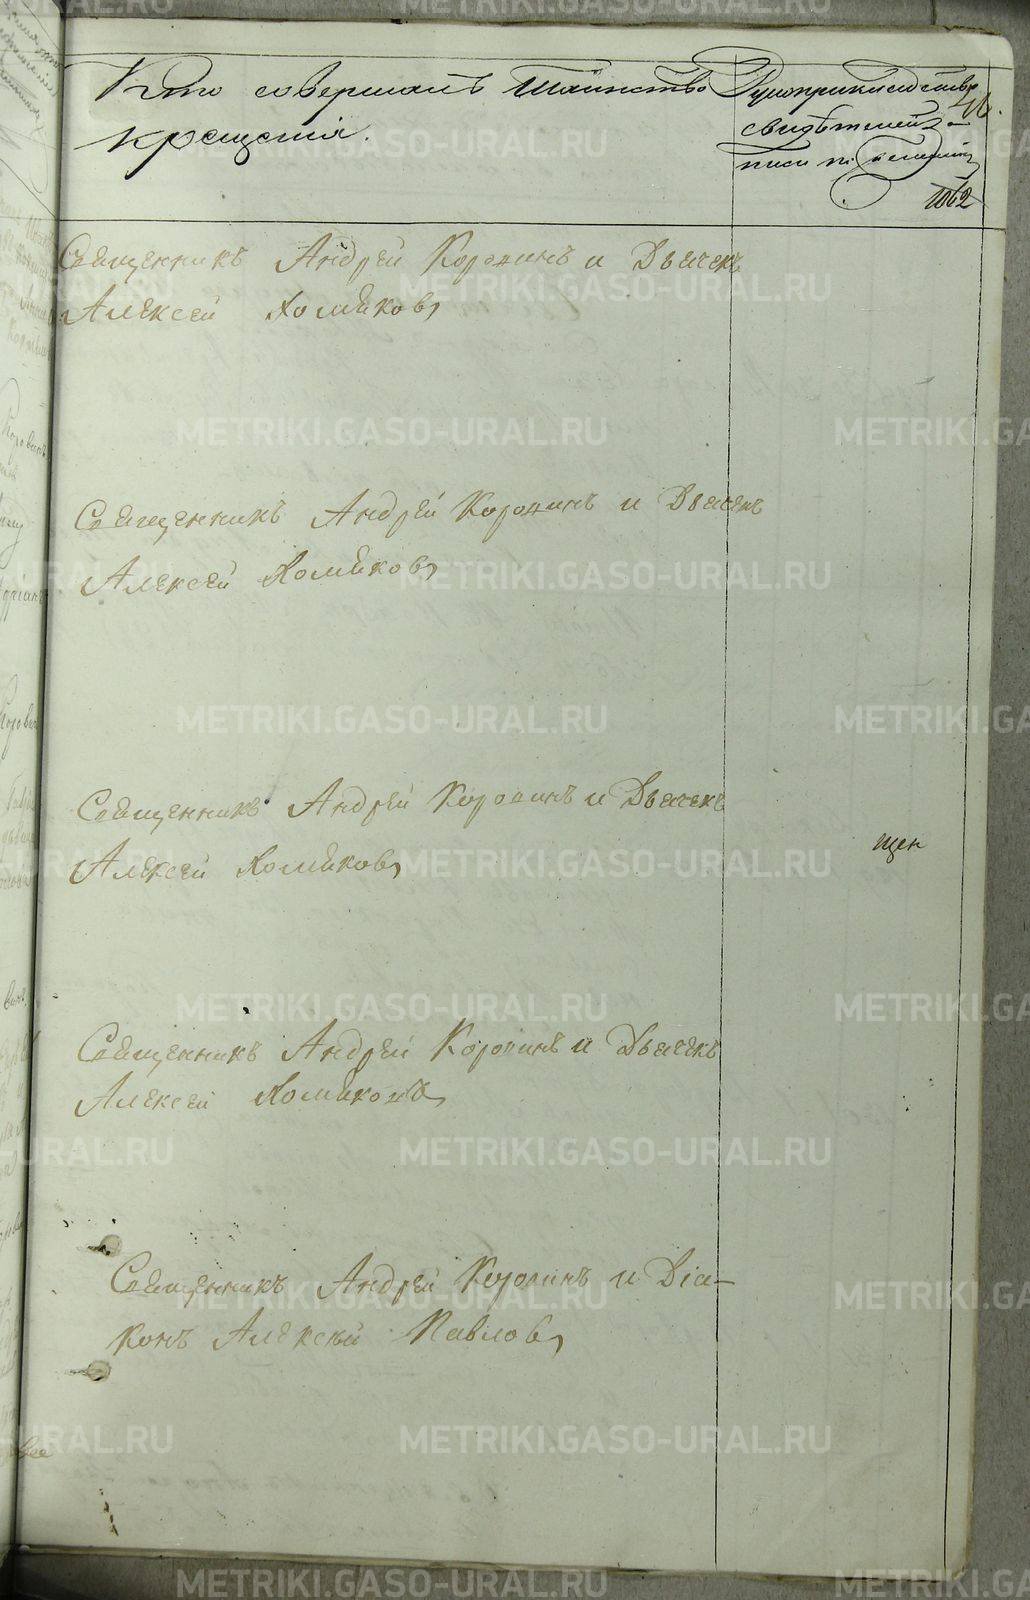 Кто совершалъ таинство
крещенія.
Рукоприкладство
свидѣтелей за-
писи по желанію
46.
1062
Священникъ Андрей Коровинъ и Дьячекъ
Алексей Хомяковъ
Священникъ Андрей Коровинъ и Дьячекъ
Алексей Хомяковъ
Священникъ Андрей Коровинъ и Дьячекъ
Алексей Хомяковъ
щен
Священникъ Андрей Коровинъ и Дьячекъ
Алексей Хомяковъ
Священникъ Андрей Коровинъ и Діа-
конъ Алексѣй Павловъ
METRIKI.GASO-URAL.RU